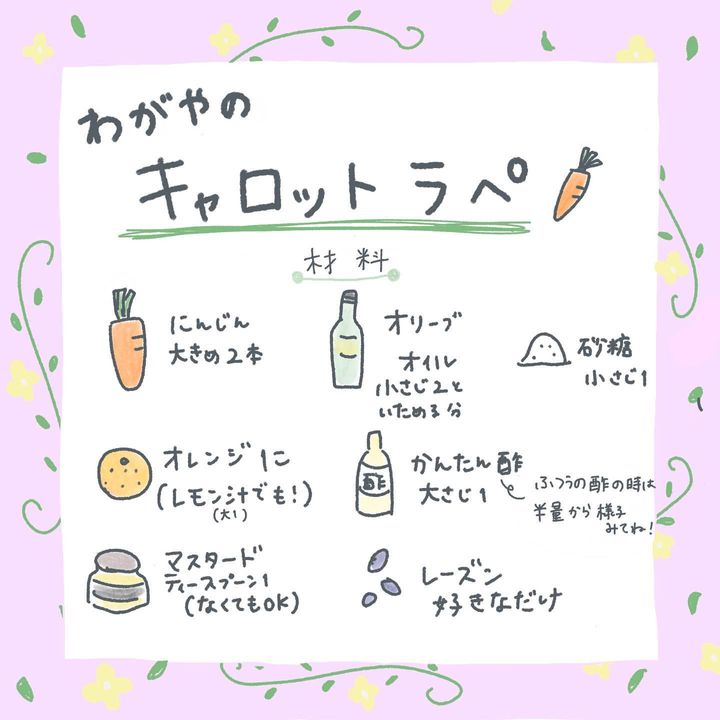 わがやの
キャロットラペ
材料
にんじん
大きめ2本
オリーブ
オイル
小さじ2と
いためる分
砂糖
小さじ1
オレンジ1こ
(レモン汁でも!)
(大1)
かんたん酢
大さじ1
酢
ふつうの酢の時は
半量から様子
みてね!
マスタード
ティースプーン1
(なくてもOK)
レーズン
好きなだけ